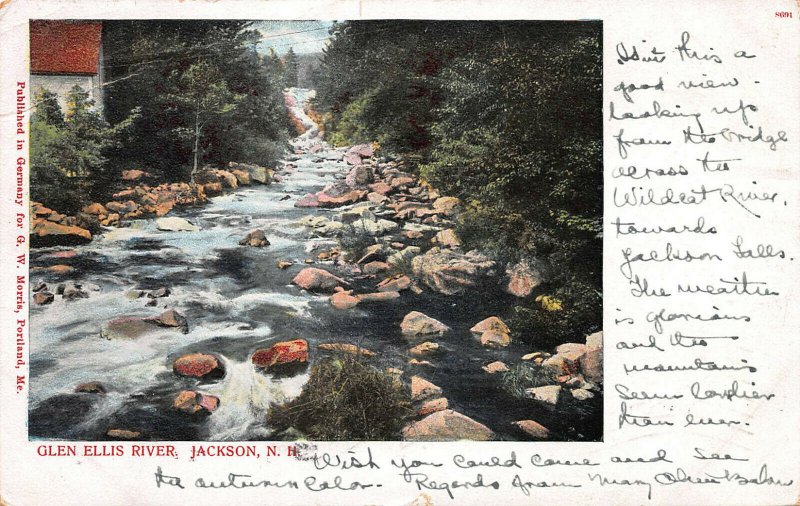 8691
Isn't this a
good view -
looking up
from the bridge
across the
Wildcat River,
towards
Jackson Falls.
The weather
is glorious
and the
mountains
seem lovlier
than ever.
Wish you could come and see
the autumn color. - Regards from Mary
Published in Germany for G. W. Morris, Portland, Me.
GLEN ELLIS RIVER, JACKSON, N. H.